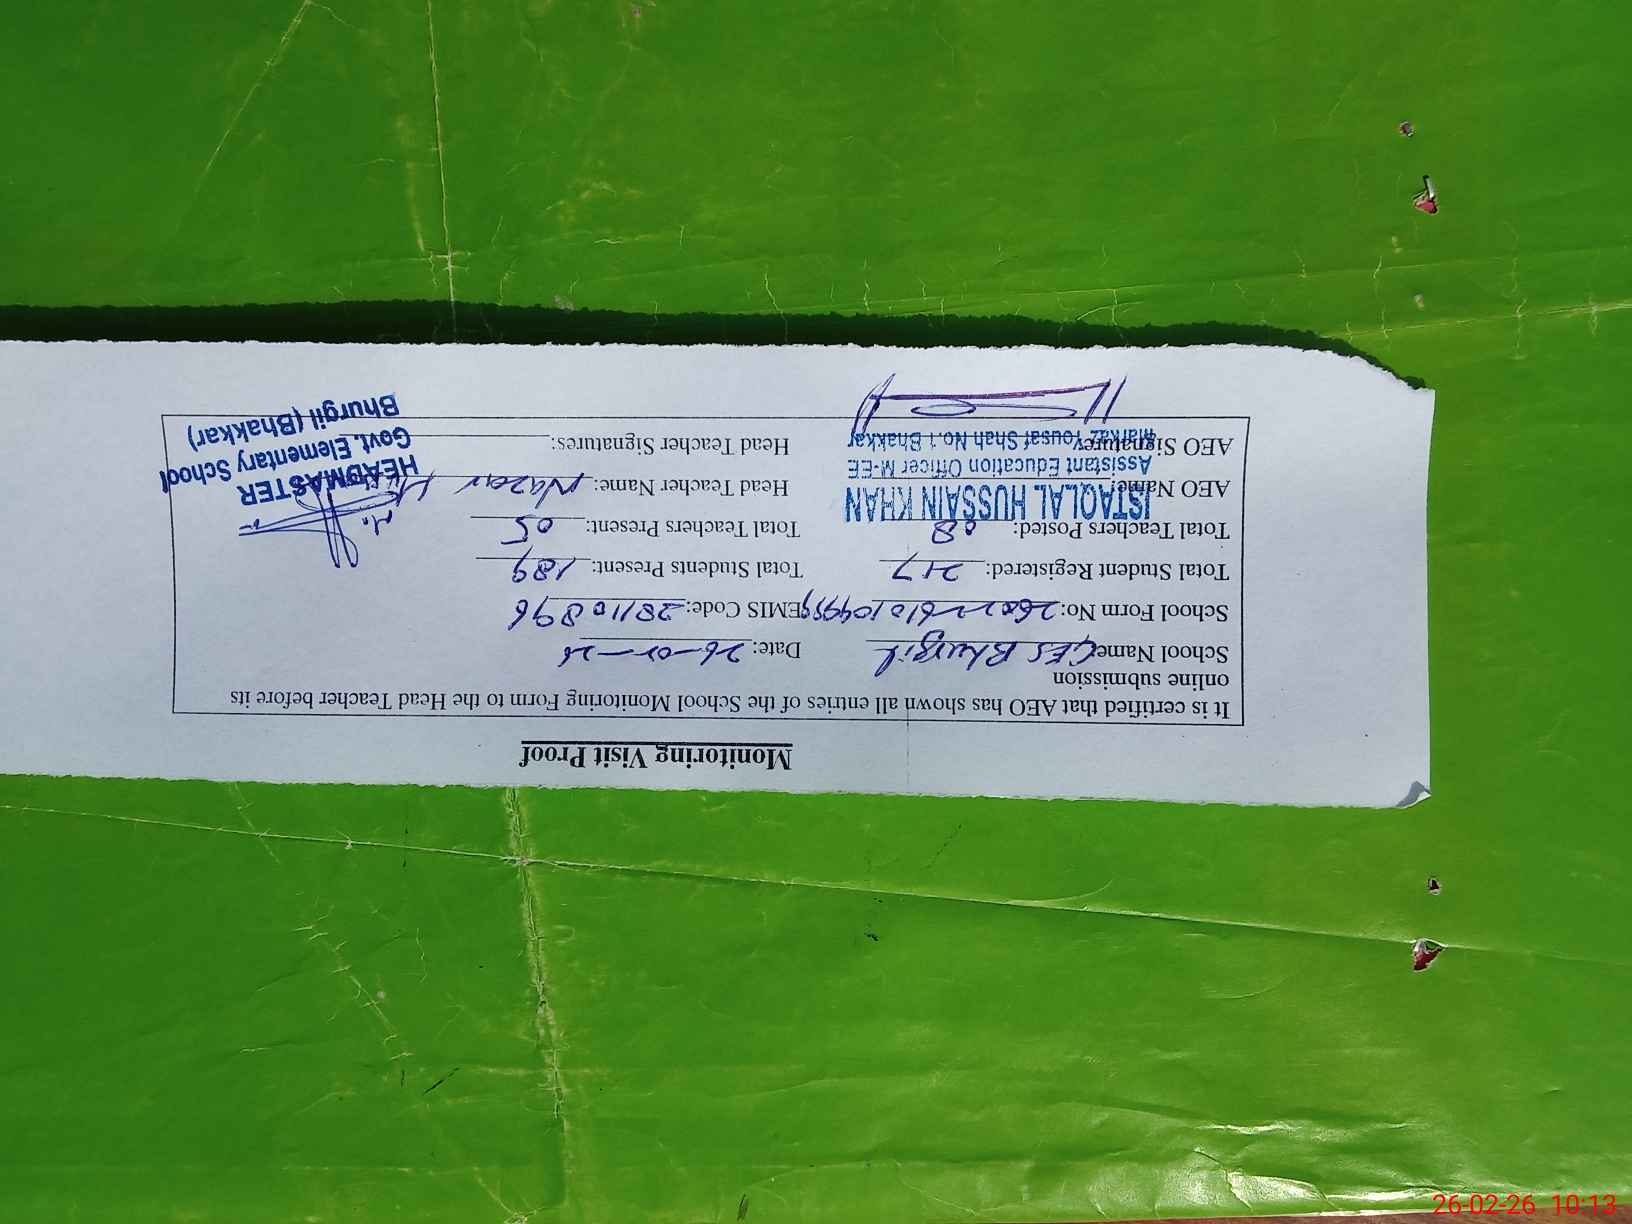 Monitoring Visit Proof
It is certified that AEO has shown all entries of the School Monitoring Form to the Head Teacher before its
online submission
School Name GES Bhurgil Date: 26-02-26
School Form No: EMIS Code: 28110896
Total Student Registered: 217 Total Students Present: 189
Total Teachers Posted: 08 Total Teachers Present: 05
AEO Name: Head Teacher Name: Nazar
AEO Signatures: Head Teacher Signatures:
ISTAQLAL HUSSAIN KHAN
Assistant Education Officer M-EE
Markaz Yousaf Shah No.1 Bhakkar
HEADMASTER
Govt. Elementary School
Bhurgil (Bhakkar)
26-02-26 10:13